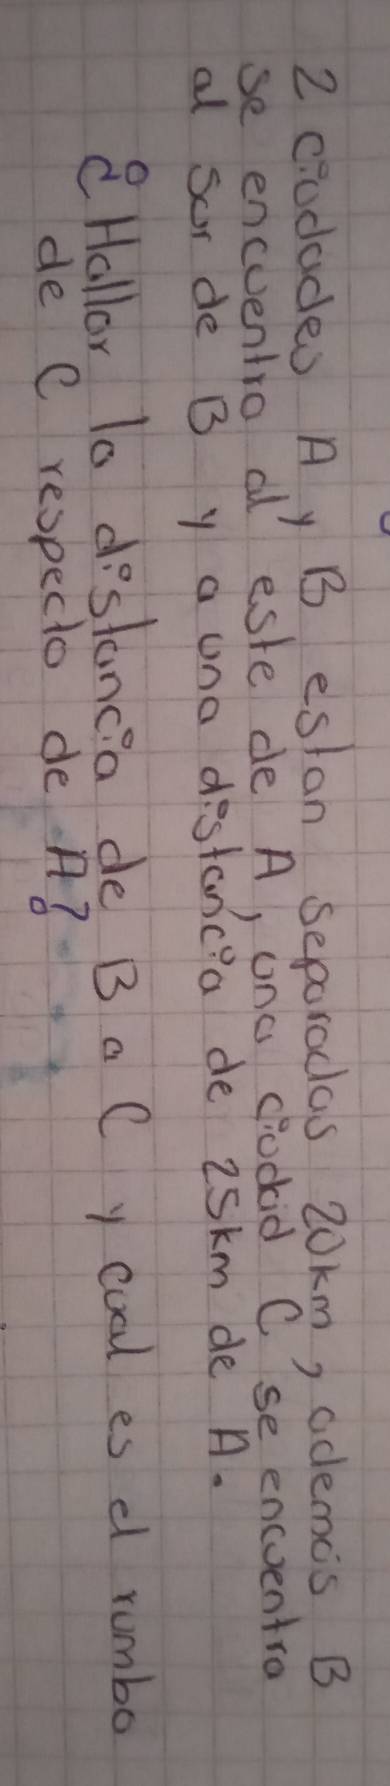 2 ciudades A y B estan separadas 20km, además B
se encuentra al este de A, una ciudad C se encuentra
al sur de B y a una distancia de 25km de A.
¿Hallar la distancia de B a C y cual es el rumbo
de C respecto de A?